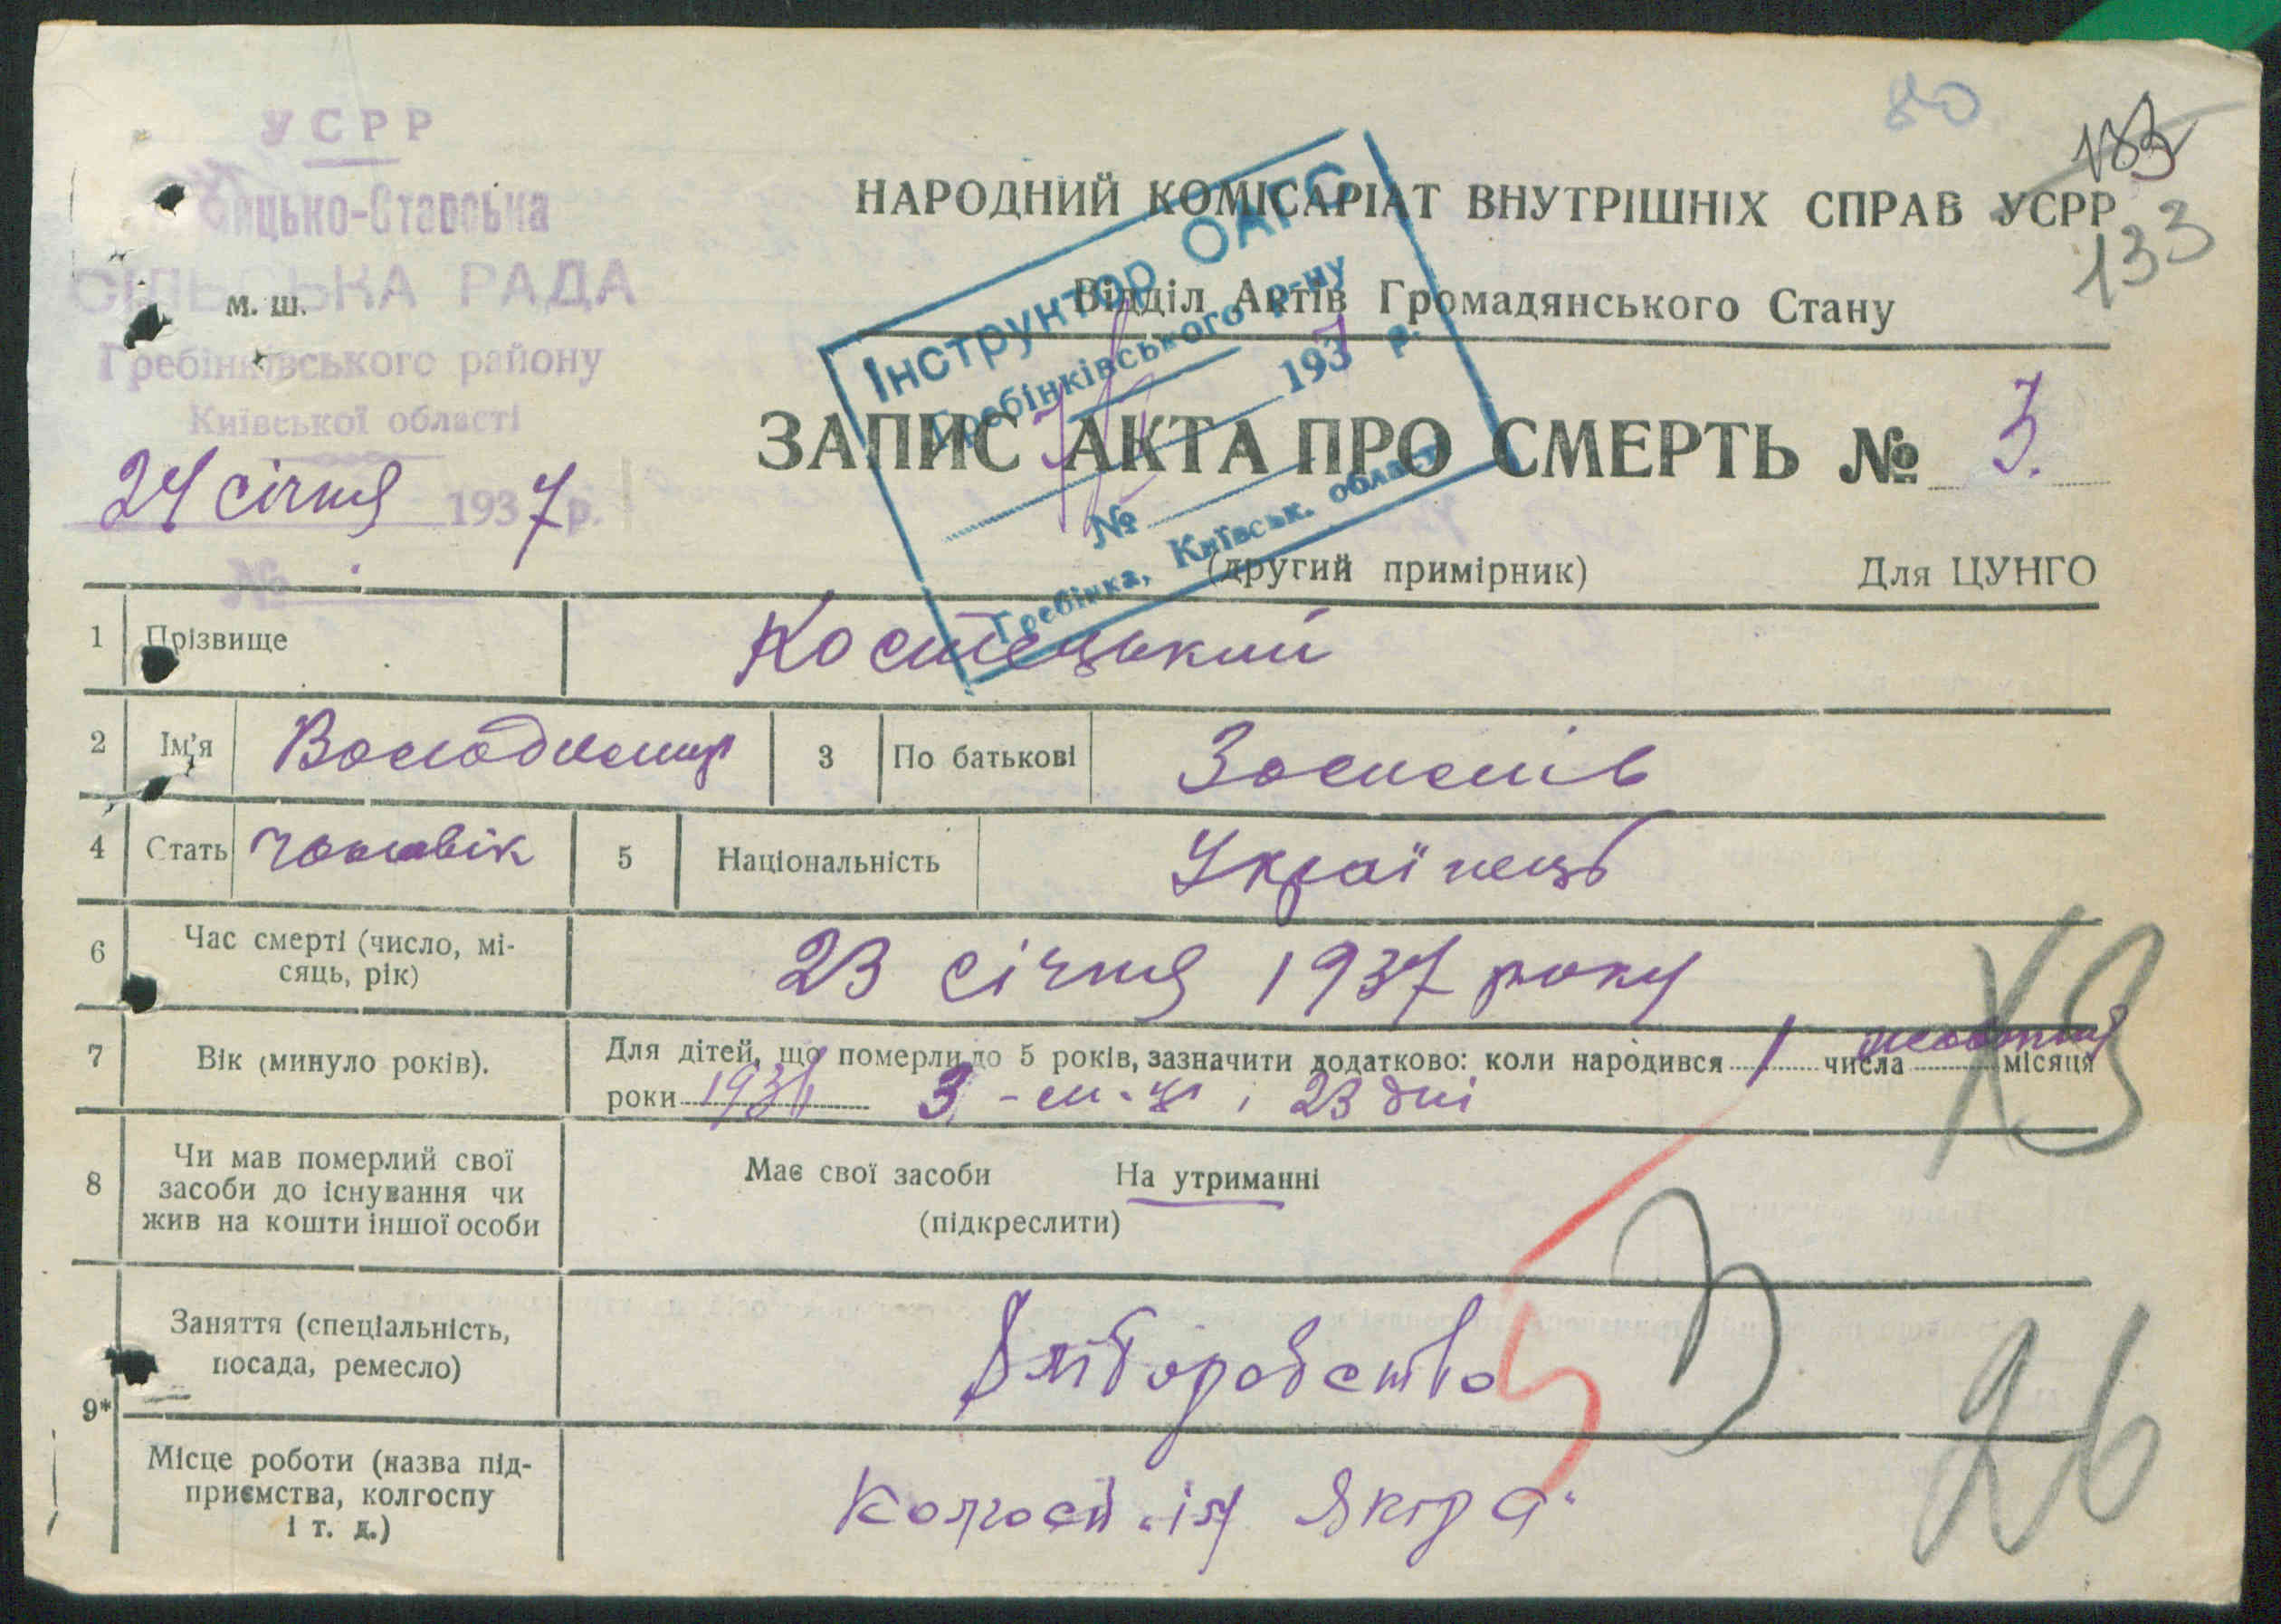 80
183
133
УСРР
ицько-Ставська
СІЛЬСЬКА РАДА
м. ш.
Гребінківського району
Київської області
24 січня 1937 р.
№
НАРОДНИЙ КОМІСАРІАТ ВНУТРІШНІХ СПРАВ УСРР
Відділ Актів Громадянського Стану
Інструктор ОАГС
Гребінківського р-ну
1937 р.
№
Гребінка, Київськ. област
ЗАПИС АКТА ПРО СМЕРТЬ № 3.
(другий примірник) Для ЦУНГО
1 Прізвище Костецький
2 Ім'я Володимир 3 По батькові Зосимів
4 Стать чоловік 5 Національність Українець
6 Час смерті (число, мі-
сяць, рік) 23 січня 1937 року
7 Вік (минуло років). Для дітей, що померли до 5 років, зазначити додатково: коли народився 1 числа жовтня місяця
роки 1936 3 - м-ці, 23 дні
8 Чи мав померлий свої
засоби до існування чи
жив на кошти іншої особи
Має свої засоби На утриманні
(підкреслити)
ХЗ
9* Заняття (спеціальність,
посада, ремесло) Хліборобство
Місце роботи (назва під-
приємства, колгоспу
і т. д.) Колгосп „ім Якіра“
26